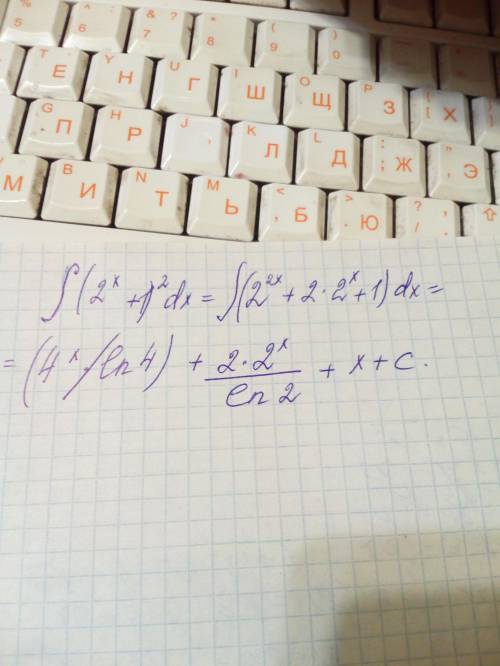 % 5 ^ 6 & ? 7 * 8 ( 9 ) 0
T Е Y Н U Г I Ш O Щ P З { [ Х
G П H Р J , K Л L Д : ; Ж " , Э
М B И N Т M Ь < , Б > . Ю ? / .
∫(2^x + 1)^2 dx = ∫(2^{2x} + 2 · 2^x + 1) dx =
= (4^x / ln 4) + \frac{2 · 2^x}{ln 2} + x + c.